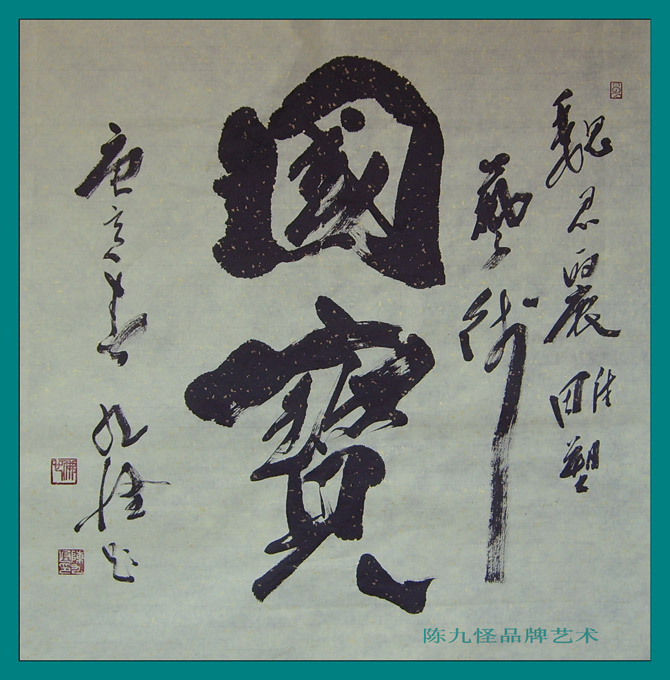 魏思麗雕塑
藝術
國寶
庚寅春 九怪书
陈九怪品牌艺术